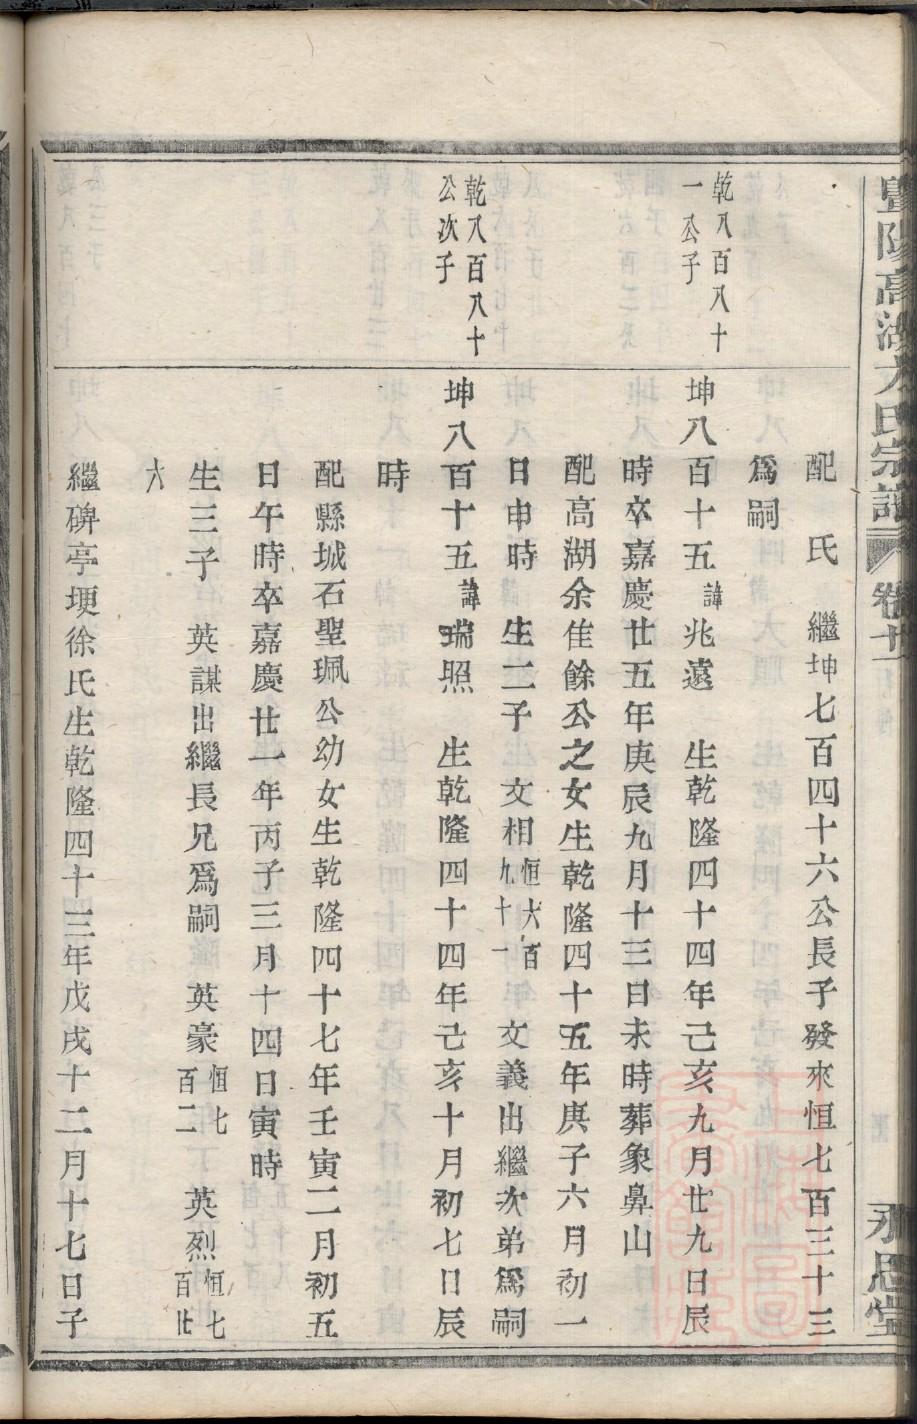 暨陽高湖方氏宗譜 卷十一 永思堂
配 氏 繼坤七百四十六公長子發來恒七百三十三
爲嗣
乾八百八十
一公子
坤八百十五諱兆遠 生乾隆四十四年己亥九月廿九日辰
時卒嘉慶廿五年庚辰九月十三日未時葬象鼻山
配高湖余隹餘公之女生乾隆四十五年庚子六月初一
日申時 生二子 文相恒六百九十一 文義出繼次弟爲嗣
乾八百八十
公次子
坤八百十五諱瑞照 生乾隆四十四年己亥十月初七日辰
時
配縣城石聖珮公幼女生乾隆四十七年壬寅二月初五
日午時卒嘉慶廿一年丙子三月十四日寅時
生三子 英謀出繼長兄爲嗣 英豪恒七百二 英烈恒七百廿
六
繼碑亭埂徐氏生乾隆四十三年戊戌十二月十七日子